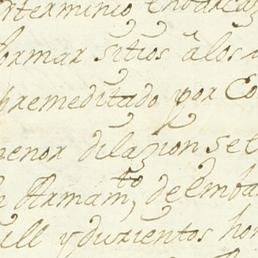 terminio, embaraz
formar sitios â los
premeditado por Co
menor dilazion se e
Armam,to de emba
ill y duzientos hom